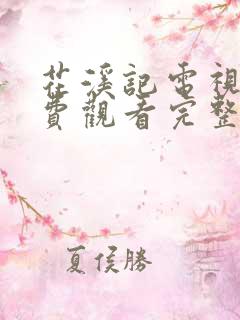 茈溪記電視
費觀看完整
夏侯勝